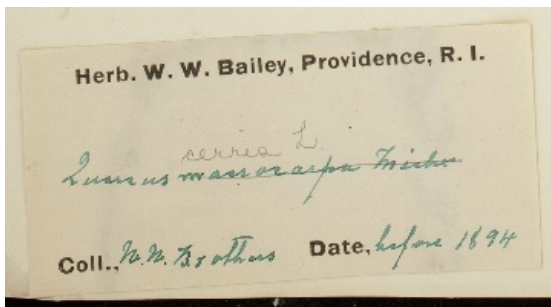 Herb. W. W. Bailey, Providence, R. I.
cerris L.
Quercus macrocarpa Michx
Coll., N. N. Brothers Date, before 1894